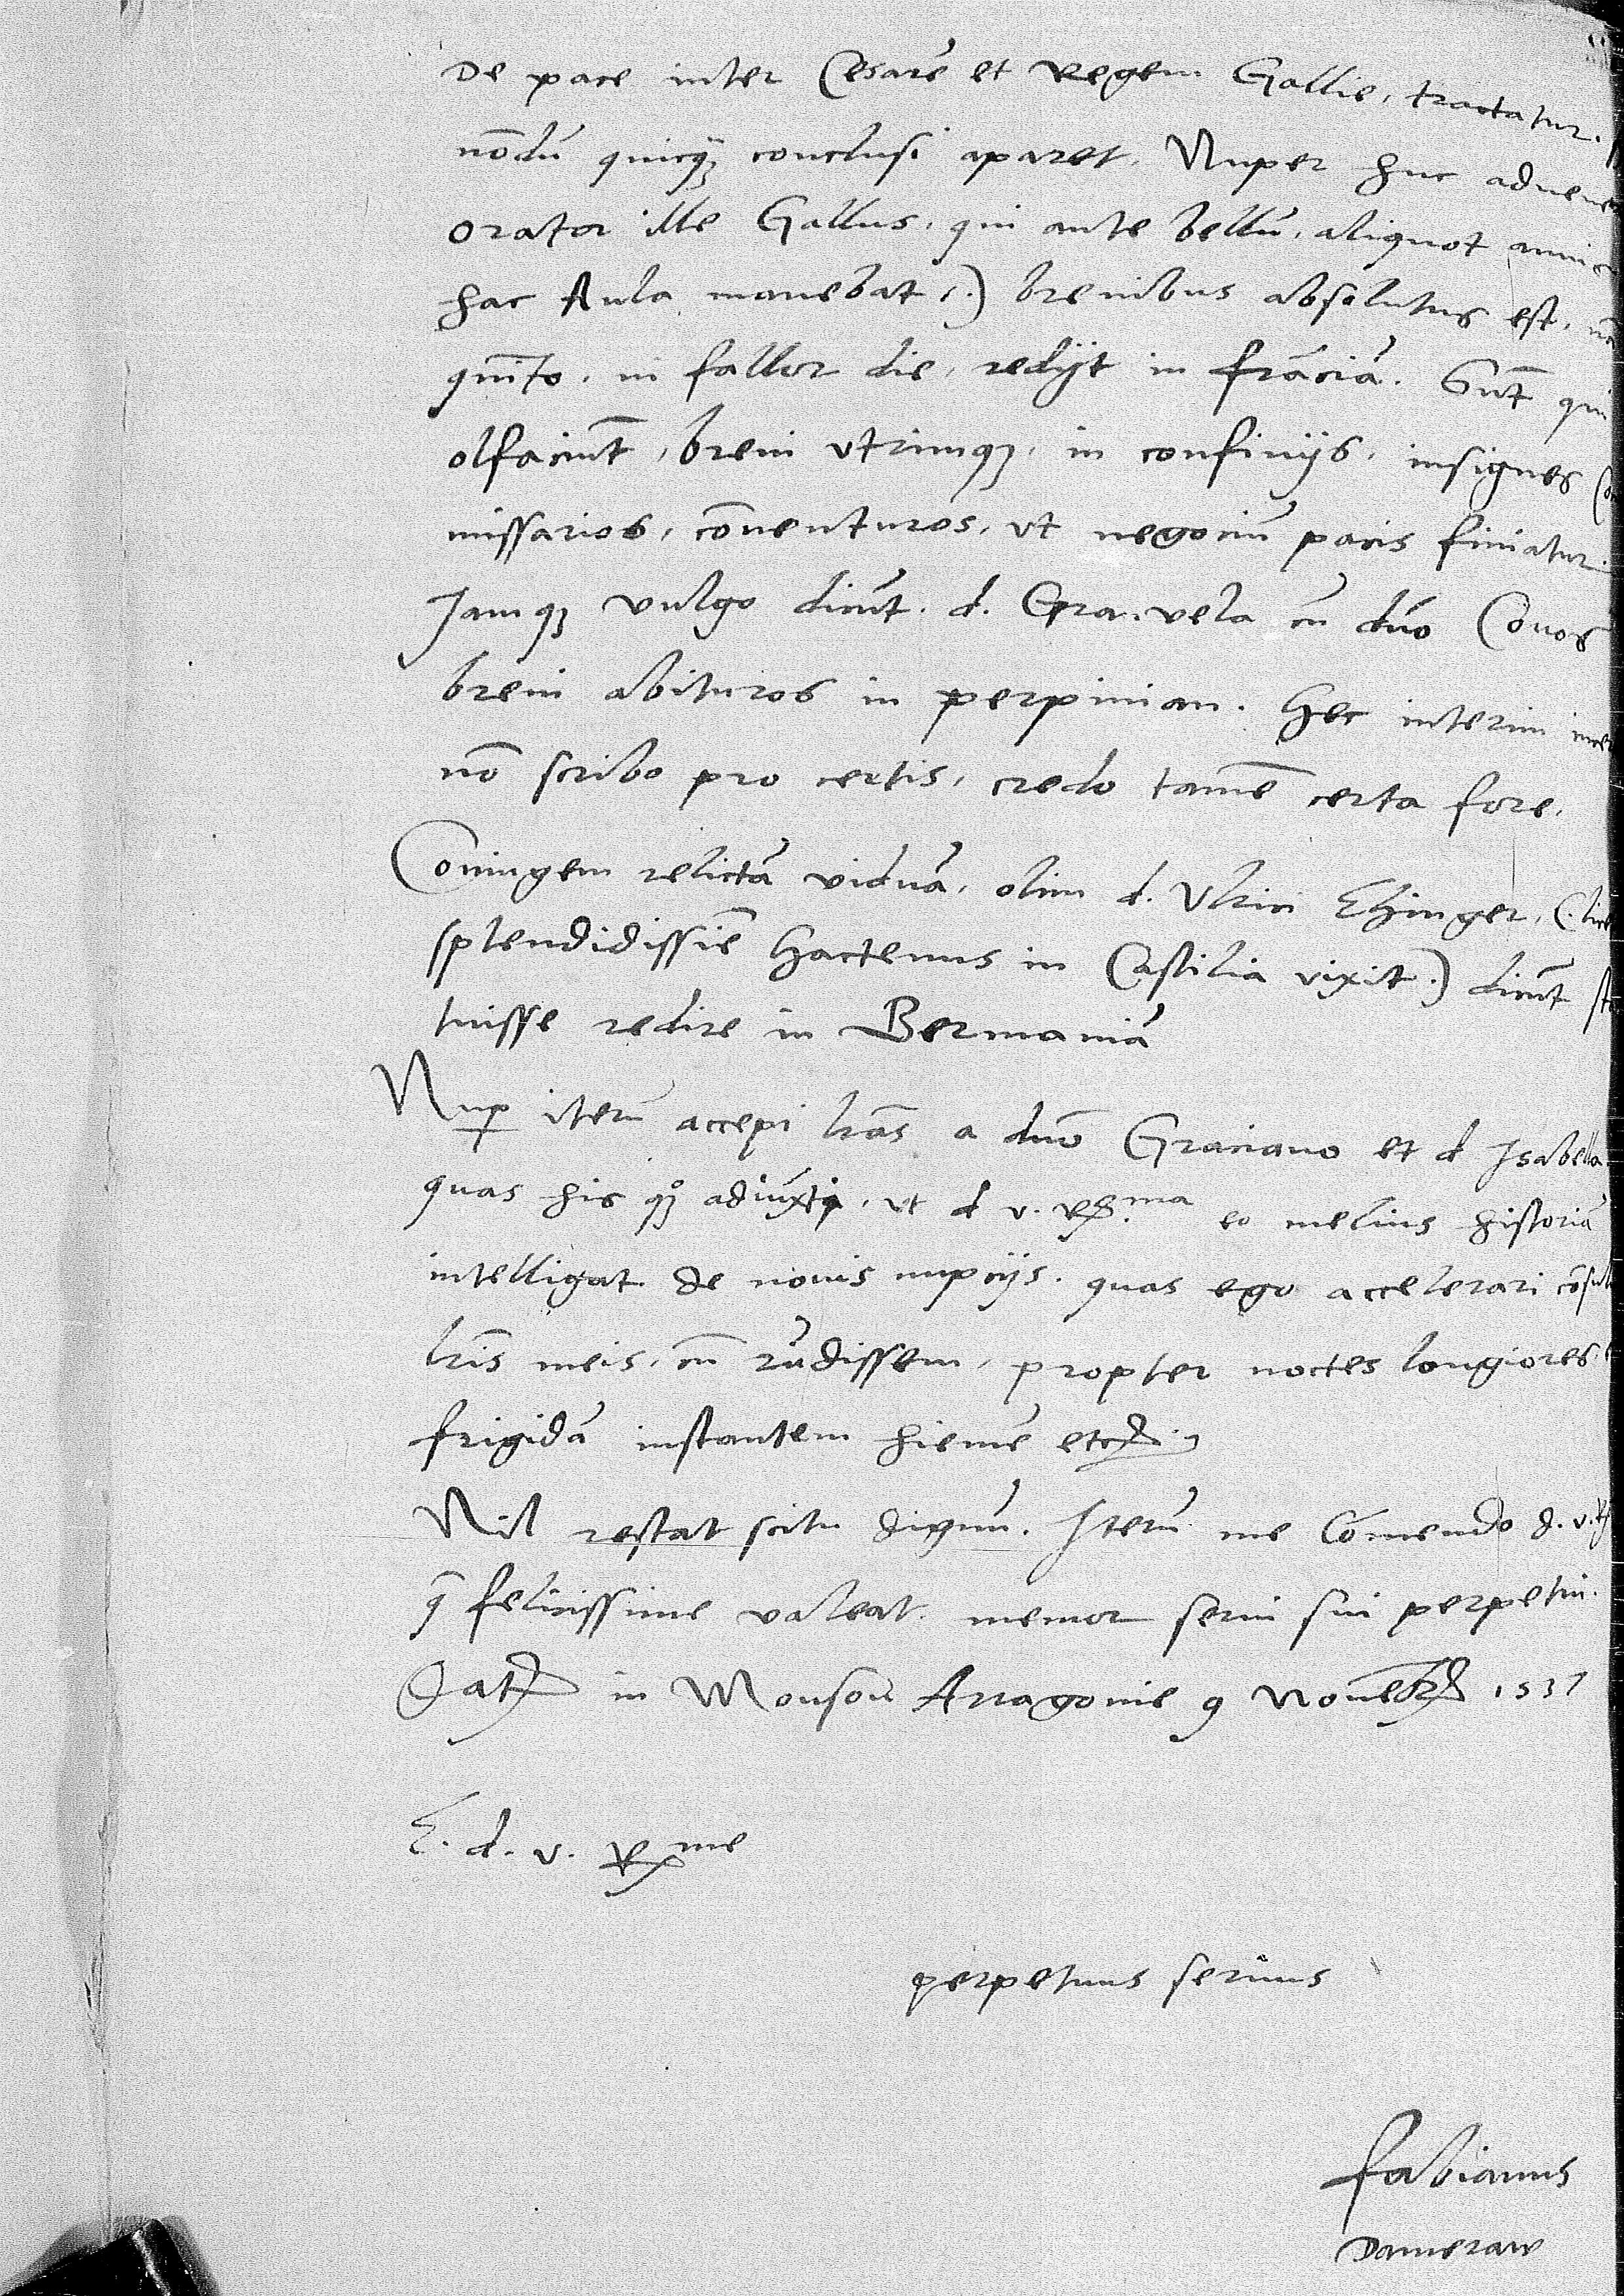 De pace inter Cesarē et Regem Gallie, tractatur.
nōdū quicq̄ conclusi aparet. Nuper huc advene
orator ille Gallus, qui ante bellū, aliquot annis
hac Aula manebat (.) brevibus absolutus est, nā
quīto, ni fallor die, redijt in frāciā. Sūt qui
olfaciūt, brevi utrimq̄, in confinijs, insignes Co
missarios, cōventuros, ut negociū pacis finiatur.
Jamq̄ vulgo dicūt. d. Granvela cū dūo Covos
brevi abituros in perpinian. Hec interim
nō scribo pro certis, credo tamē certa fore.
Coniugem relictā viduā, olim d. Ulrici Ehinger, (. lice
splendidissīe hactenus in Castilia vixit.) dicūt sta
tuisse redire in Germaniā
Nup iterū accepi lr̄as a dn̄o Graciano et d Isabella
quas his q̄ adiūxi, ut d v. R.ma eo melius historiā
intelligat de novis nupcijs. quas ego accelerari cōsul
lr̄is meis, cū rūdissem, propter noctes longiores.
frigidā instantem hiemē etc.
Nil restat scitu dignū. Iterū me Cōmendo d. v. R
q̄ felicissime valeat. memor servi sui perpetui.
Dat in Monson Arragonie 9 Novēbr 1537
E. d. v. R me
perpetuus servus
fabianus
Dameraw